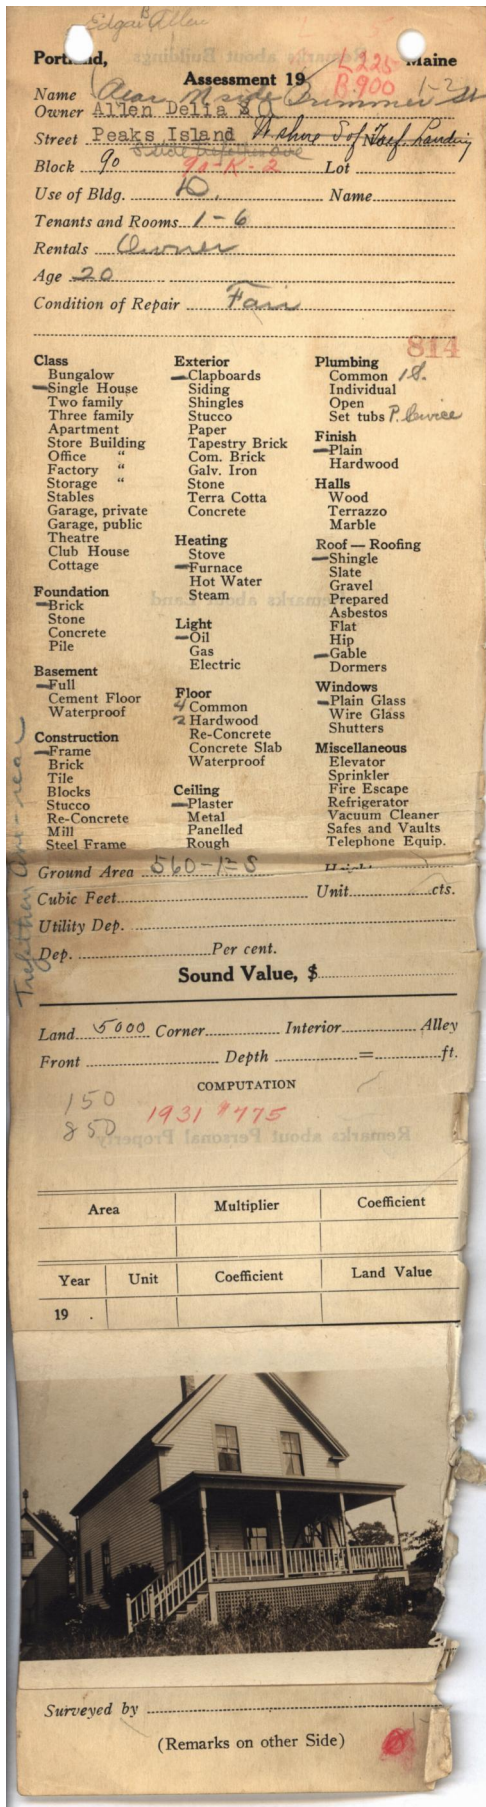 Edgar B Allen
Portland, Maine
L 225
Assessment 19
B. 900 1-2
Name (Rear N side Brimmer St
Owner Allen Della & O
Street Peaks Island W. shore S of Tref. Landing
S side Trefethen Ave
Block 90 90-K-2 Lot
Use of Bldg. D. Name
Tenants and Rooms 1-6
Rentals Owner
Age 20
Condition of Repair Fair
814
Class
Bungalow
Single House
Two family
Three family
Apartment
Store Building
Office "
Factory "
Storage "
Stables
Garage, private
Garage, public
Theatre
Club House
Cottage
Foundation
Brick
Stone
Concrete
Pile
Basement
Full
Cement Floor
Waterproof
Construction
Frame
Brick
Tile
Blocks
Stucco
Re-Concrete
Mill
Steel Frame
Exterior
Clapboards
Siding
Shingles
Stucco
Paper
Tapestry Brick
Com. Brick
Galv. Iron
Stone
Terra Cotta
Concrete
Heating
Stove
Furnace
Hot Water
Steam
Light
Oil
Gas
Electric
Floor
4 Common
2 Hardwood
Re-Concrete
Concrete Slab
Waterproof
Ceiling
Plaster
Metal
Panelled
Rough
Plumbing
Common 1 S.
Individual
Open
Set tubs P. Service
Finish
Plain
Hardwood
Halls
Wood
Terrazzo
Marble
Roof — Roofing
Shingle
Slate
Gravel
Prepared
Asbestos
Flat
Hip
Gable
Dormers
Windows
Plain Glass
Wire Glass
Shutters
Miscellaneous
Elevator
Sprinkler
Fire Escape
Refrigerator
Vacuum Cleaner
Safes and Vaults
Telephone Equip.
Trefethen Ave - rear
Ground Area 560-1 2 S Height
Cubic Feet Unit cts.
Utility Dep.
Dep. Per cent.
Sound Value, $
Land 5000 Corner Interior Alley
Front Depth = ft.
COMPUTATION
150
850
1931 $775
Remarks about Personal Property
Area Multiplier Coefficient
Year Unit Coefficient Land Value
19 .
Surveyed by
(Remarks on other Side)